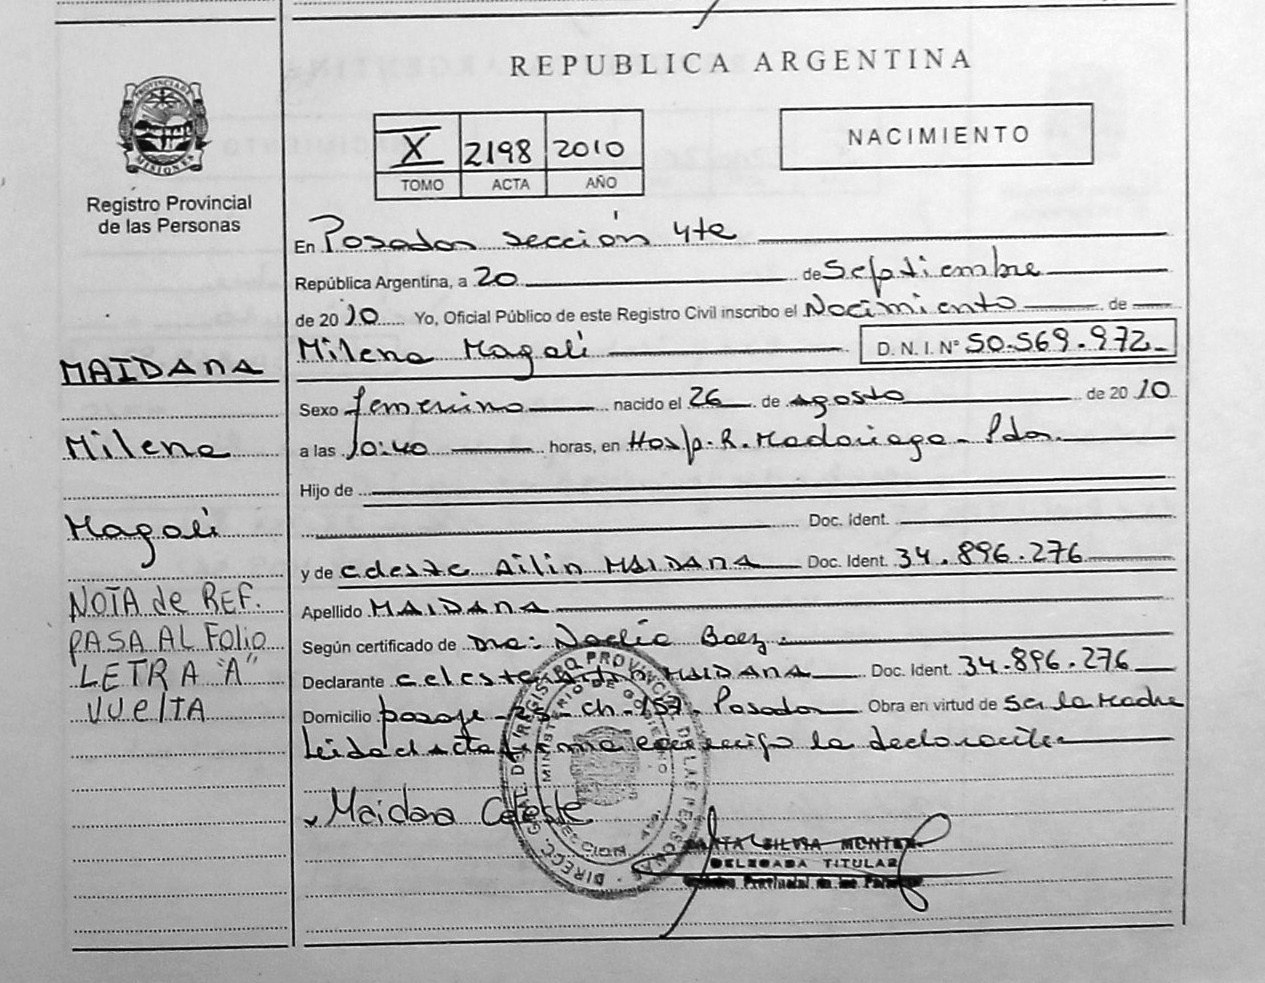 REPUBLICA ARGENTINA
PROVINCIA DE MISIONES
Registro Provincial
de las Personas
X 2198 2010
TOMO ACTA AÑO
NACIMIENTO
En Posadas sección 4ta
República Argentina, a 20 de Septiembre
de 2010 Yo, Oficial Público de este Registro Civil inscribo el Nacimiento de
Milena Magalí D. N. I. N° 50.569.972
Sexo femenino nacido el 26 de agosto de 2010
a las 10:40 horas, en Hosp. R. Madariaga - Pdas.
Hijo de
Doc. Ident.
y de Celeste Ailin MAIDANA Doc. Ident. 34.896.276
Apellido MAIDANA
Según certificado de Dra: Noelia Baez
Declarante Celeste Ailin MAIDANA Doc. Ident. 34.896.276
Domicilio pasaje - 25 - ch - 157 Posadas Obra en virtud de Ser la Madre
Leida el acta firma conmigo la declarante
Maidana Celeste
SILVIA
DELEGADA TITULAR
Registro Provincial de las Personas
DIREC. GRAL. DEL REGISTRO PROVINCIAL DE LAS PERSONAS
MINISTERIO DE GOBIERNO
MAIDANA
Milena
Magalí
NOTA de REF.
PASA AL Folio
LETRA "A"
VUELTA